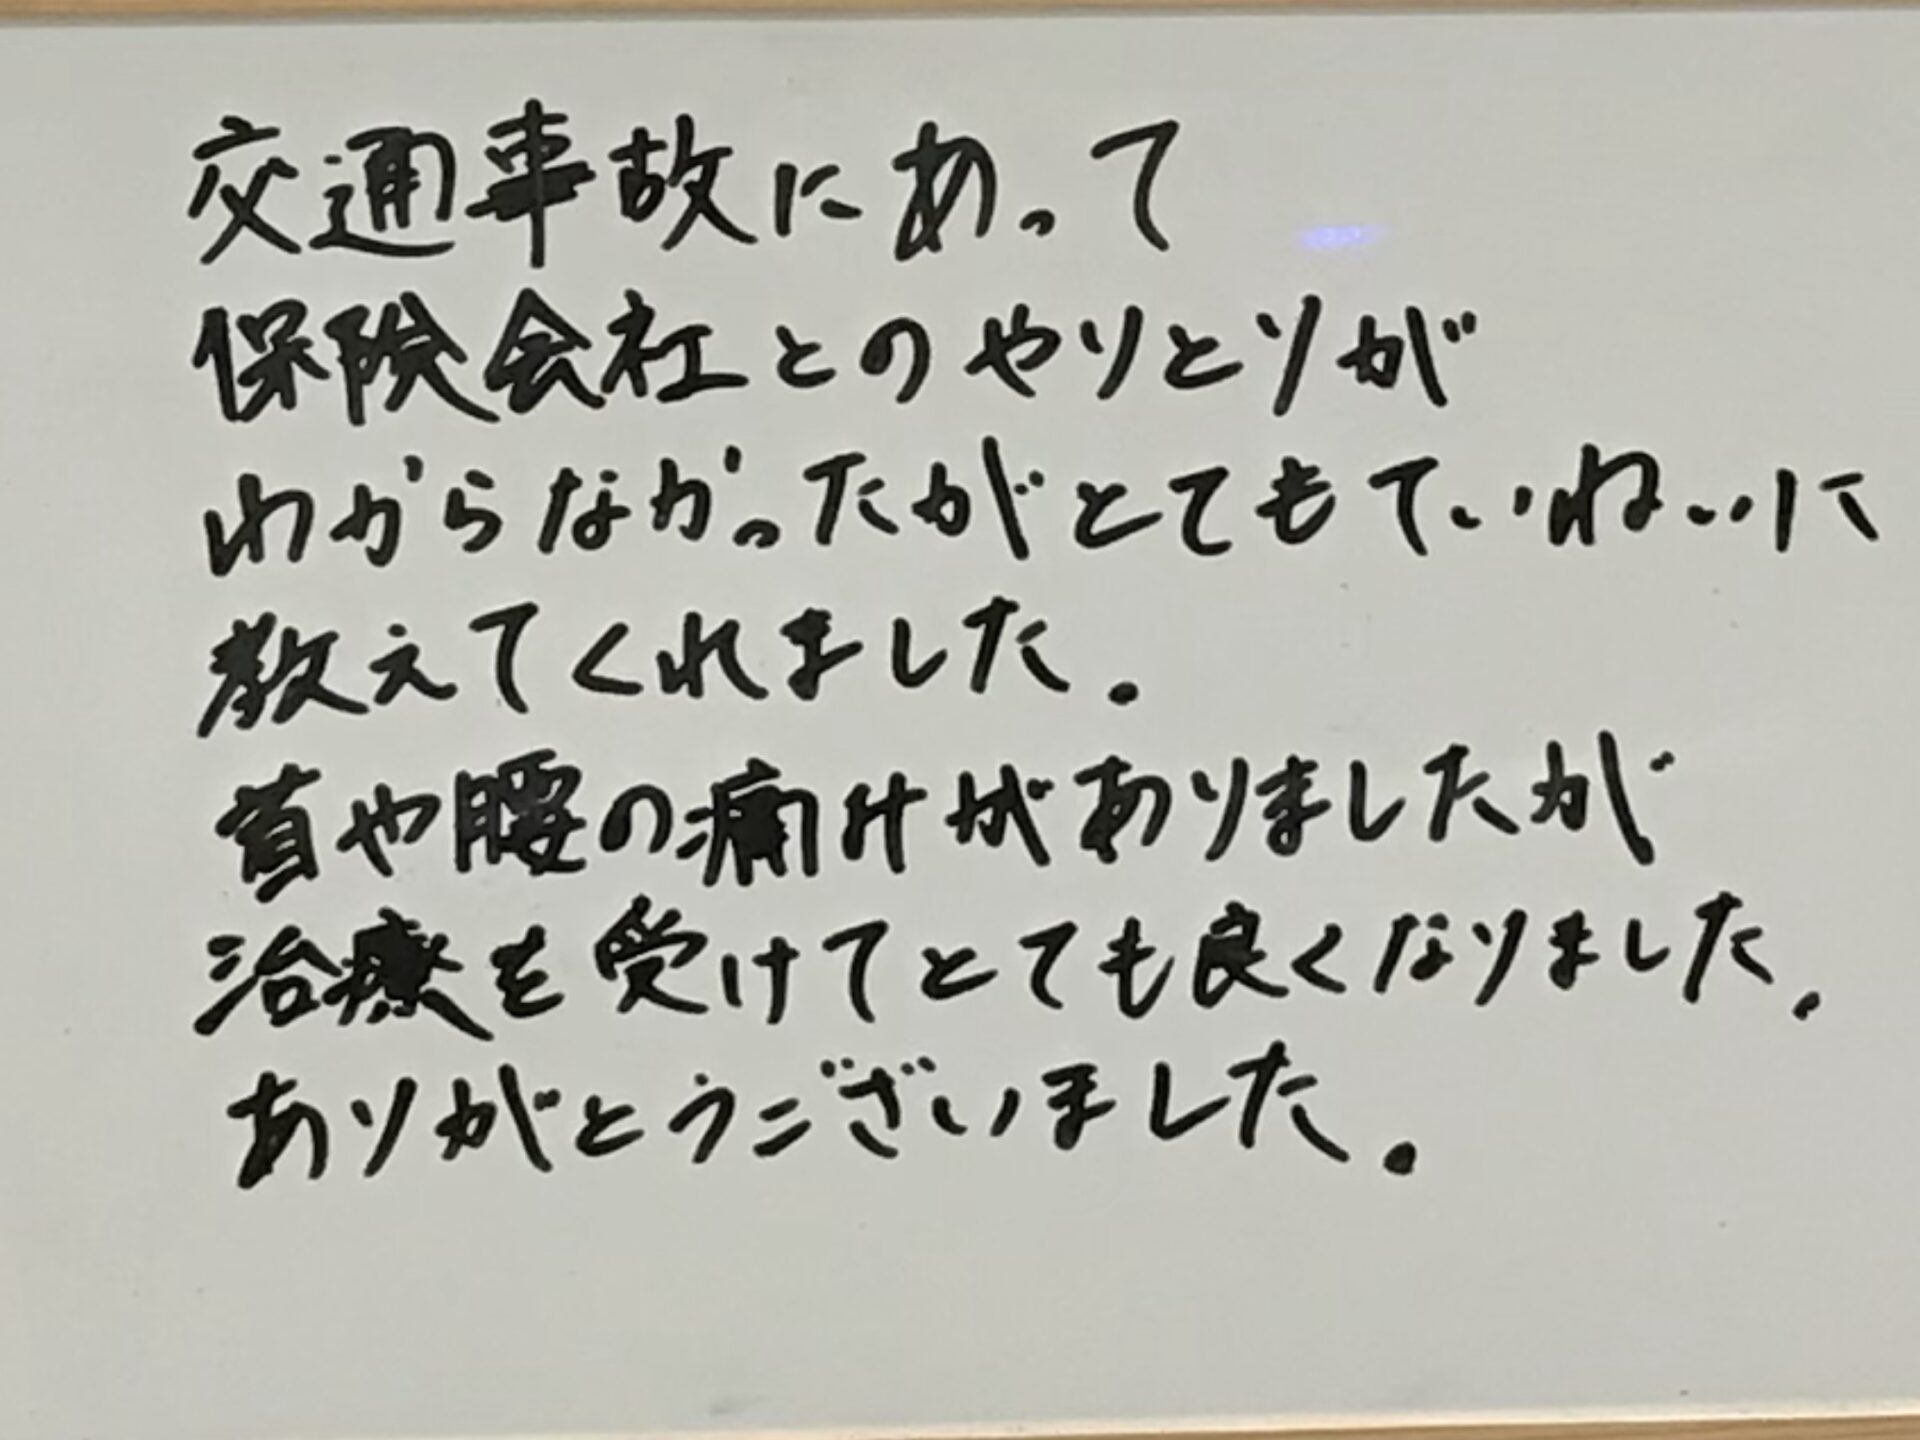 交通事故にあって
保険会社とのやりとりが
わからなかったがとてもていねいに
教えてくれました.
首や腰の痛みがありましたが
治療を受けてとても良くなりました.
ありがとうございました.